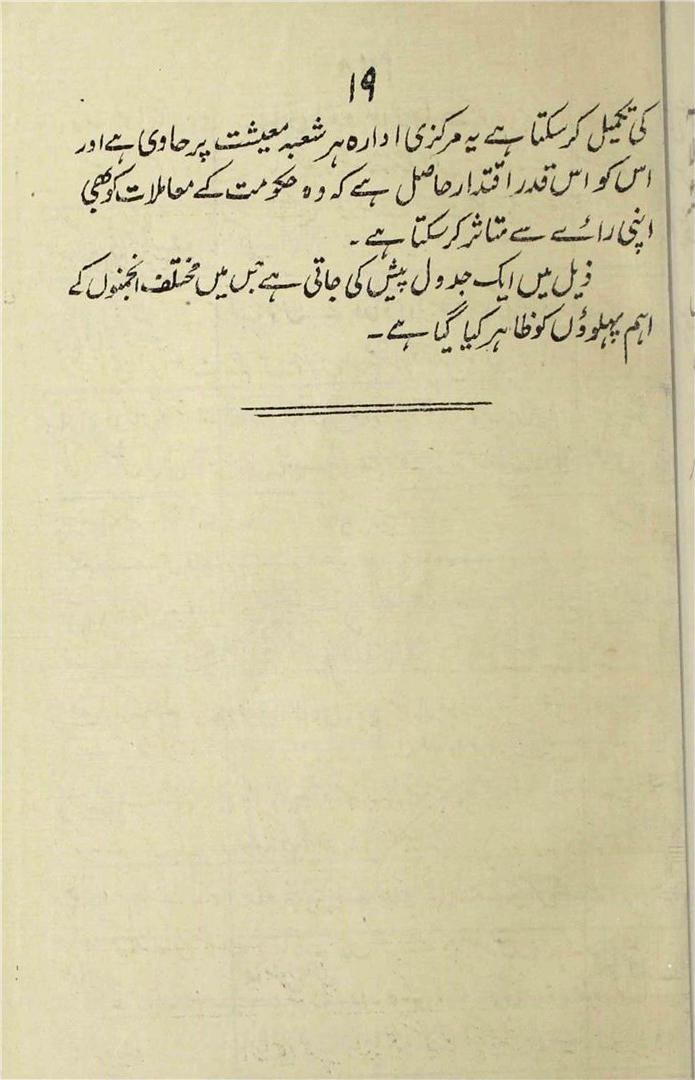 ۱۹
کی تکمیل کرسکتا ہے یہ مرکزی ادارہ ہر شعبہ معیشت پر حاوی ہے اور
اس کو اس قدر اقتدار حاصل ہے کہ وہ حکومت کے معاملات کو بھی
اپنی رائے سے متاثر کرسکتا ہے۔
ذیل میں ایک جدول پیش کی جاتی ہے جس میں مختلف انجمنوں کے
اہم پہلوؤں کو ظاہر کیا گیا ہے۔